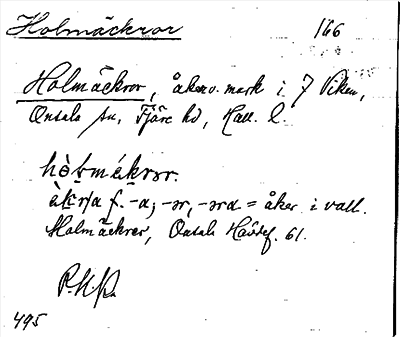 Holmäckror 166
Holmäckror, åkerv. mark i 7 Viken,
Onsala sn, Fjäre hd, Hall. l.
hòɫmékrər.
èkra f. -a; -ər, -əra = åker i vall.
Holmäckrer, Onsala Hävdef. 61.
495